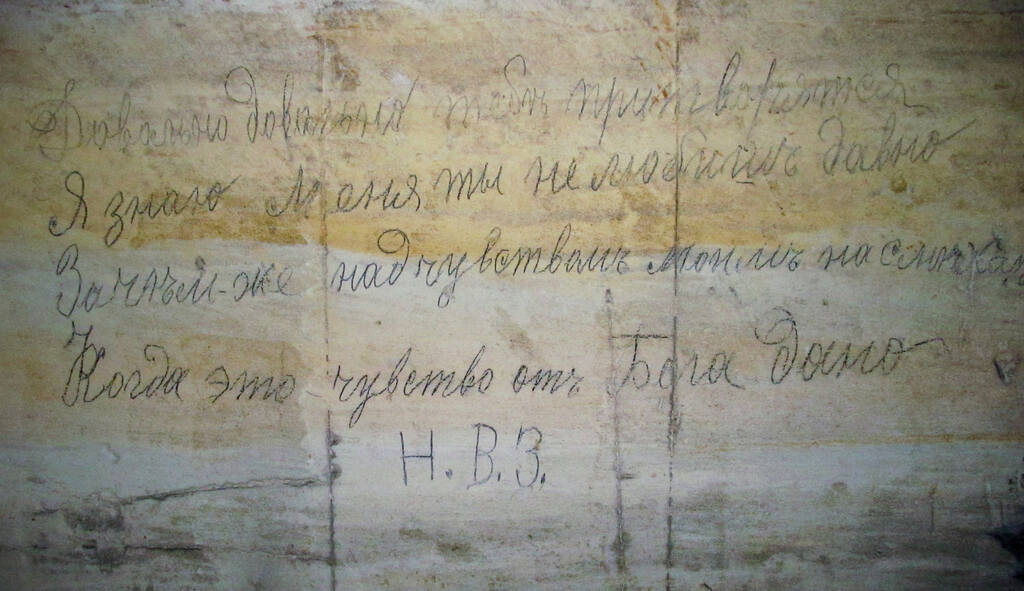 Довально довально тебѣ притворятся
Я знаю Меня ты не любишъ давно
Зачѣм-же надчувствомъ моимъ
Когда это чувство отъ Бога дано
Н.В.З.